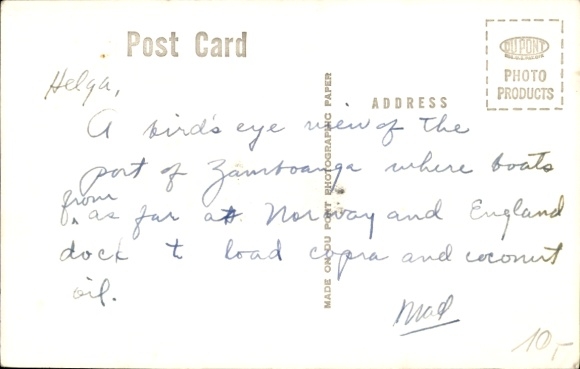 Post Card
DU PONT
PHOTO
PRODUCTS
ADDRESS
MADE ON DU PONT PHOTOGRAPHIC PAPER
Helga,
A bird's eye view of the
port of Zamboanga where boats
from
as far as Norway and England
dock to load copra and coconut
oil.
10,-